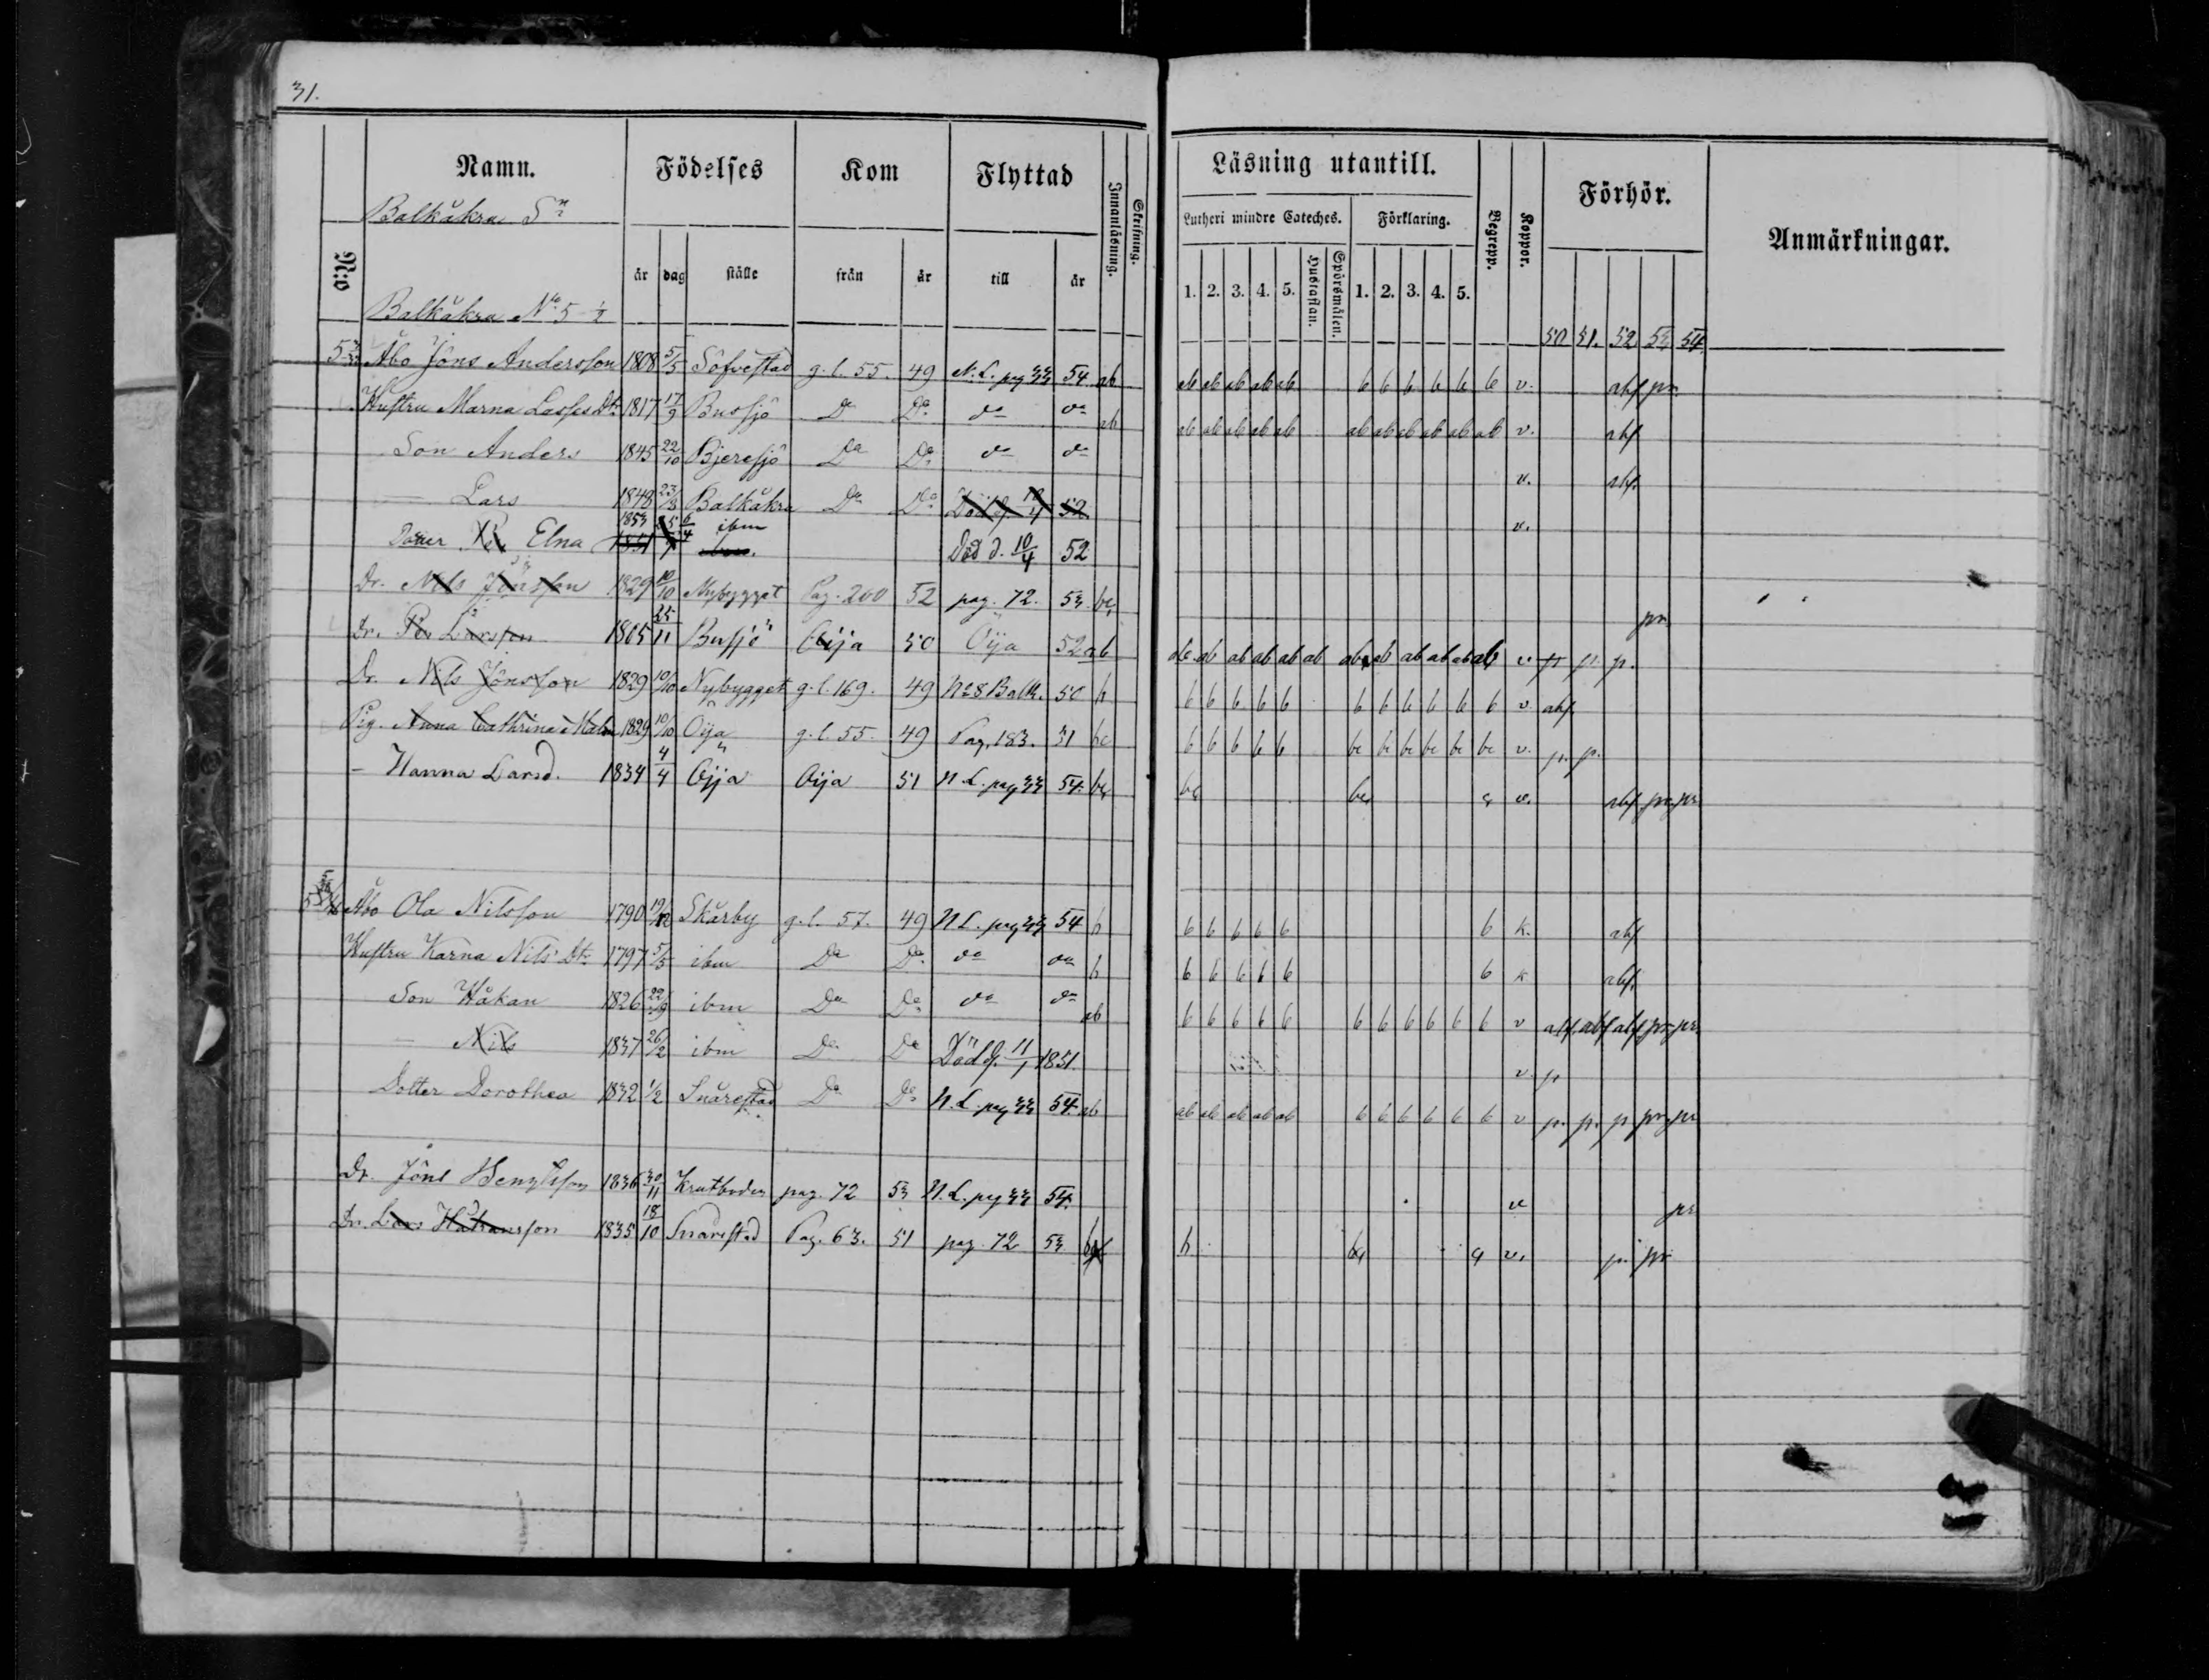 31.
Namn. Födelses Kom Flyttad Innanläsning. Skrifning. Läsning utantill. Begrepp. Koppor. Förhör. Anmärkningar.
Balkåkra Sn
Lutheri mindre Cateches. Förklaring.
N:o år dag ställe från år till år 1. 2. 3. 4. 5. Hustaflan. Spörsmålen. 1. 2. 3. 4. 5.
Balkåkra No 5 1/2 50 51. 52 53 54.
Åbo Jöns Andersson 1808 5/5 Söfvestad g. l. 55. 49 N. L. pag 33 54 ab ab ab ab ab ab b b b b b b v. abs pr.
Hustru Marna Lasses Dtr 1817 17/9 Bussjö Do Do do do ab ab ab ab ab ab ab ab ab ab ab ab v. abs
Son Anders 1845 22/10 Bjeresjö Do Do do do v. abs.
— Lars 1848 23/8 Balkåkra Do Do Död d. 10/4 52 v.
Elna 1853 6/4 ibm 1851 ibm. Död d. 10/4 52
Dr. Nils Jönsson 1829 10/10 Nybygget Pag. 200 52 pag. 72. 53 bc pr
Dr. Per Larsson 1805 25/11 Bussjö Öija 50 Öija 52 ab ab ab ab ab ab ab ab ab ab ab ab ab v pr pr. p.
Dr. Nils Jönsson 1829 10/10 Nybygget g. l. 169. 49 N:o 8 Balk. 50 h b b b b b b b b b b b v abs
Pig. Anna Cathrina Malm 1829 10/10 Öija g. l. 55. 49 Pag. 183. 51 bc b b b b b bc bc bc bc bc bc v. p. p.
— Hanna Larsd. 1834 4/4 Öjja Öija 51 N L. pag 33 54. bc bc bc c v. abs pr pr
Åbo Ola Nilsson 1790 19/12 Skårby g. l. 57. 49 N L. pag 33 54 h b b b b b b k. abs
Hustru Karna Nils Dtr 1797 5/5 ibm Do Do do do h b b b b b b k abs.
Son Håkan 1826 22/9 ibm Do Do do do ab b b b b b b b b b b b v abs. abs abs pr pr.
— Nils 1837 26/2 ibm Do Do Död d. 11/1 1851. v. p
Dotter Dorothea 1832 1/2 Snårestad Do Do N. L. pag 33 54. ab ab ab ab ab ab b b b b b b v p. p. p pr pr
Dr. Jöns Bengtsson 1836 30/11 Krutboden pag. 72 53 N. L. pag 33 54. v pr
Dr. Lars Håkansson 1835 18/10 Snarestad Pag. 63. 51 pag. 72 53 h bc c v. p. pr